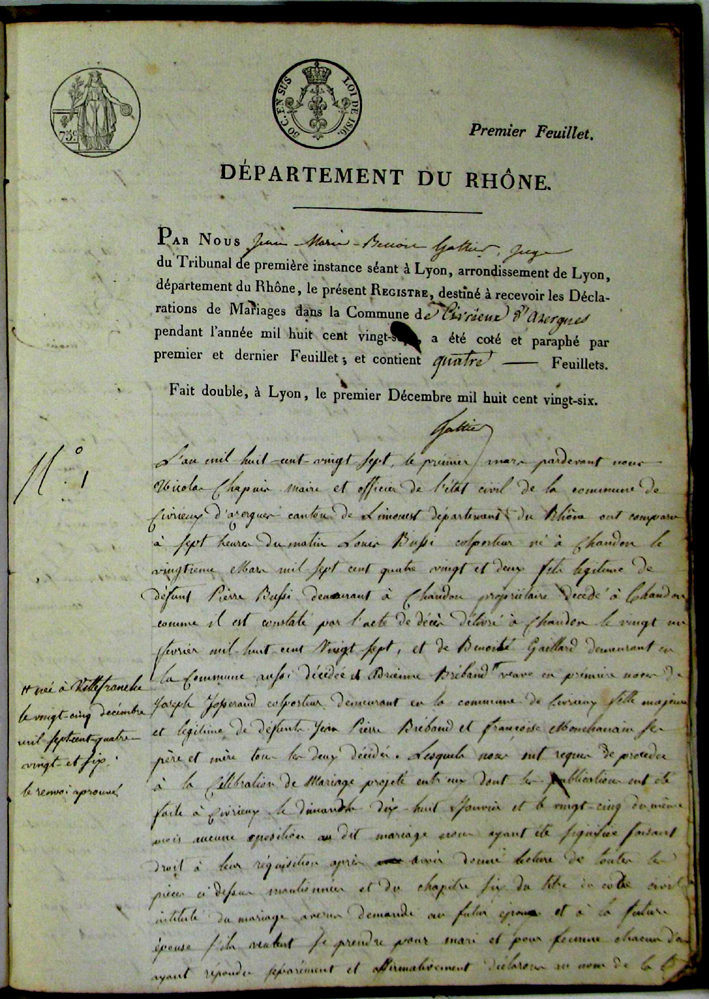 75c
30 C. EN SUS
LOI DE 1816.
Premier Feuillet.
DÉPARTEMENT DU RHÔNE.
PAR NOUS Jean-Marie-Benoit Gattier, Juge
du Tribunal de première instance séant à Lyon, arrondissement de Lyon,
département du Rhône, le présent REGISTRE, destiné à recevoir les Décla-
rations de Mariages dans la Commune de Civrieux d'azergues
pendant l'année mil huit cent vingt-sept, a été coté et paraphé par
premier et dernier Feuillet; et contient quatre — Feuillets.
Fait double, à Lyon, le premier Décembre mil huit cent vingt-six.
Gattier
N.° 1
L'an mil huit cent vingt sept, le premier mars pardevant nous
Nicolas Chapuis maire et officier de l'état civil de la commune de
Civrieux d'azergues canton de Limonest departement du Rhône ont comparu
à sept heures du matin Louis Bussi colporteur né à Chandon le
vingtieme Mars mil sept cent quatre vingt et deux fils legitime de
défunt Pierre Bussi demeurant à Chandon propriétaire décédé à Chandon
comme il est constaté par l'acte de décès délivré à Chandon le vingt un
fevrier mil huit cent Vingt sept, et de Benoite Gaillard demeurant en
la Commune aussi décédée et Brebaud veuve en première noces de
Joseph colporteur demeurant en la commune de Civrieux fille majeure
et legitime de defunts Jean Pierre Brebaud et françoise ses
père et mère tous les deux décédés. Lesquels nous ont requis de proceder
à la Célébration de Mariage projeté entr eux dont les publications ont été
faite à Civrieux le dimanche dix huit Janvier et le vingt cinq du meme
mois aucune oposition au dit mariage nous ayant été signifiée faisant
droit à leur réquisition après avoir donné lecture de toutes les
pièces ci dessus mentionnées et du chapitre six du titre du code civil
intitulé du mariage avons demandé au futur epoux et à la future
épouse s'ils veulent se prendre pour mari et pour femme chacun d'eux
ayant repondu séparement et affirmativement déclarons au nom de la loi
# née à Villefranche
le vingt-cinq décembre
mil sept cent quatre
vingt et six.
le renvoi aprouvé